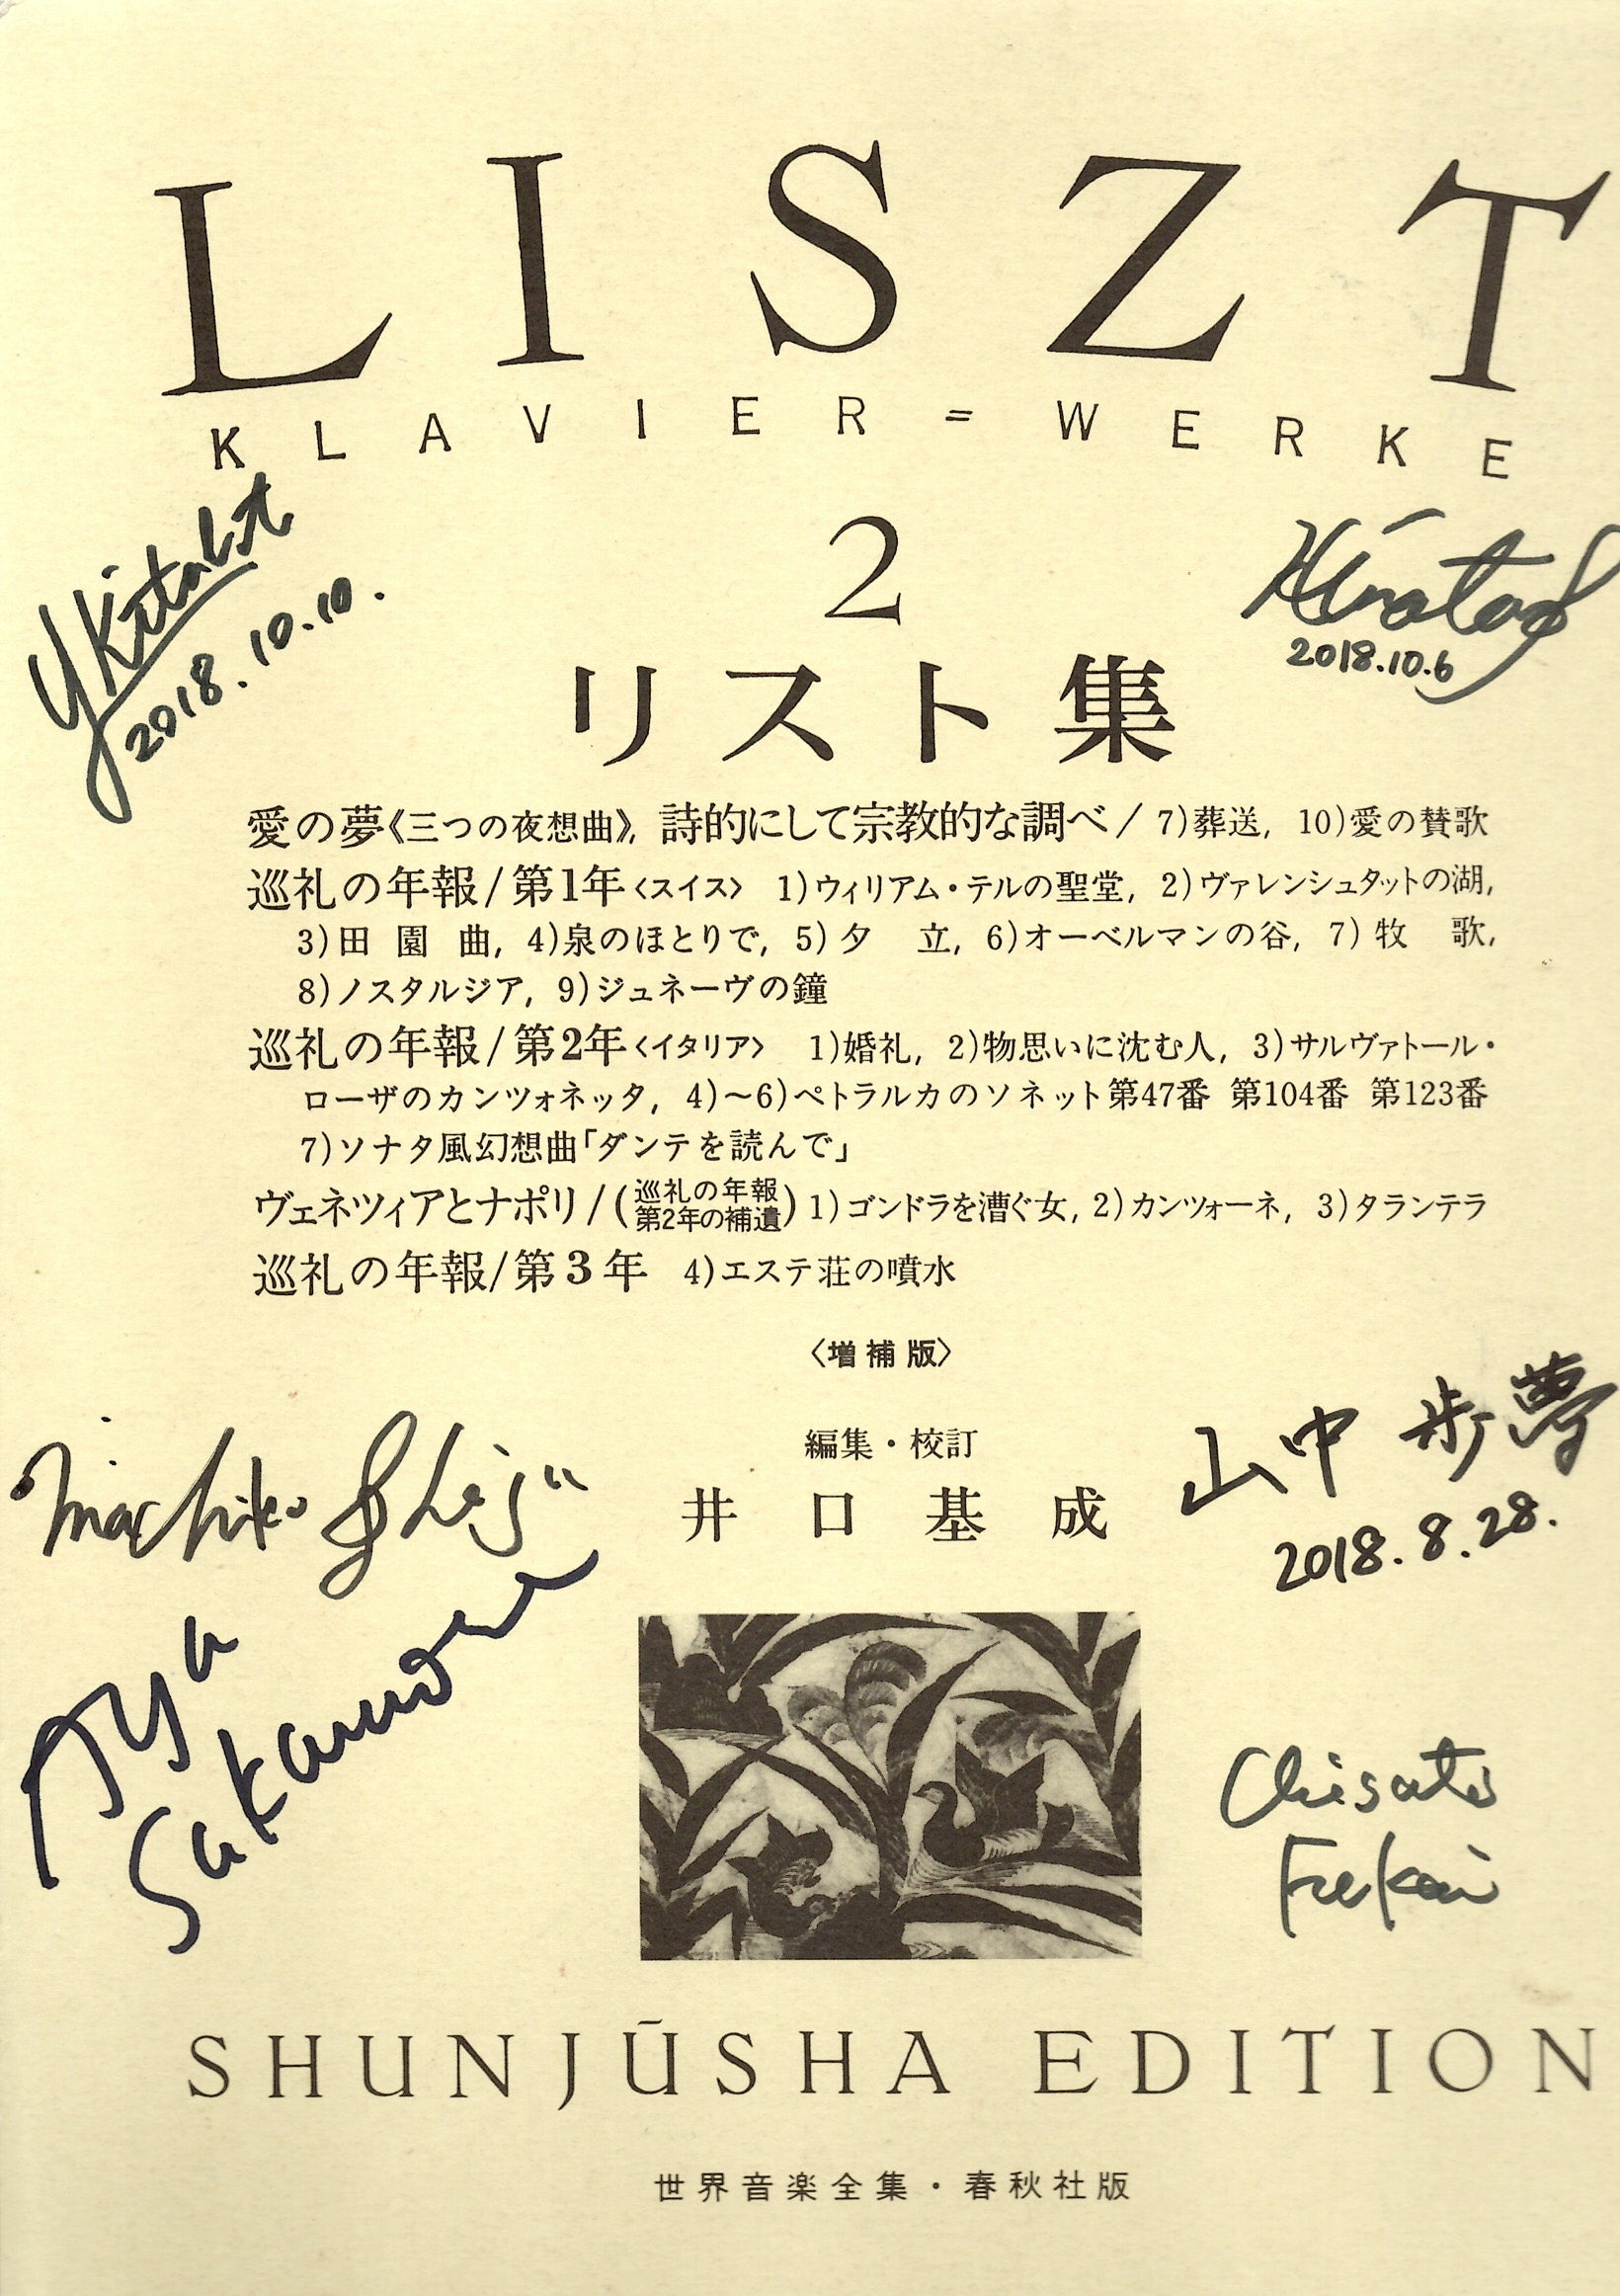 LISZT
KLAVIER=WERKE
2
2018.10.10.
2018.10.6
リスト集
愛の夢《三つの夜想曲》, 詩的にして宗教的な調べ/ 7)葬送, 10)愛の賛歌
巡礼の年報/第1年〈スイス〉 1)ウィリアム・テルの聖堂, 2)ヴァレンシュタットの湖,
3)田園曲, 4)泉のほとりで, 5)夕立, 6)オーベルマンの谷, 7)牧歌,
8)ノスタルジア, 9)ジュネーヴの鐘
巡礼の年報/第2年〈イタリア〉 1)婚礼, 2)物思いに沈む人, 3)サルヴァトール・
ローザのカンツォネッタ, 4)〜6)ペトラルカのソネット第47番 第104番 第123番
7)ソナタ風幻想曲「ダンテを読んで」
ヴェネツィアとナポリ/(巡礼の年報 第2年の補遺) 1)ゴンドラを漕ぐ女, 2)カンツォーネ, 3)タランテラ
巡礼の年報/第3年 4)エステ荘の噴水
〈増補版〉
編集・校訂
井口基成
山中歩夢
2018.8.28.
Machiko
Aya
Chisato
SHUNJŪSHA EDITION
世界音楽全集・春秋社版